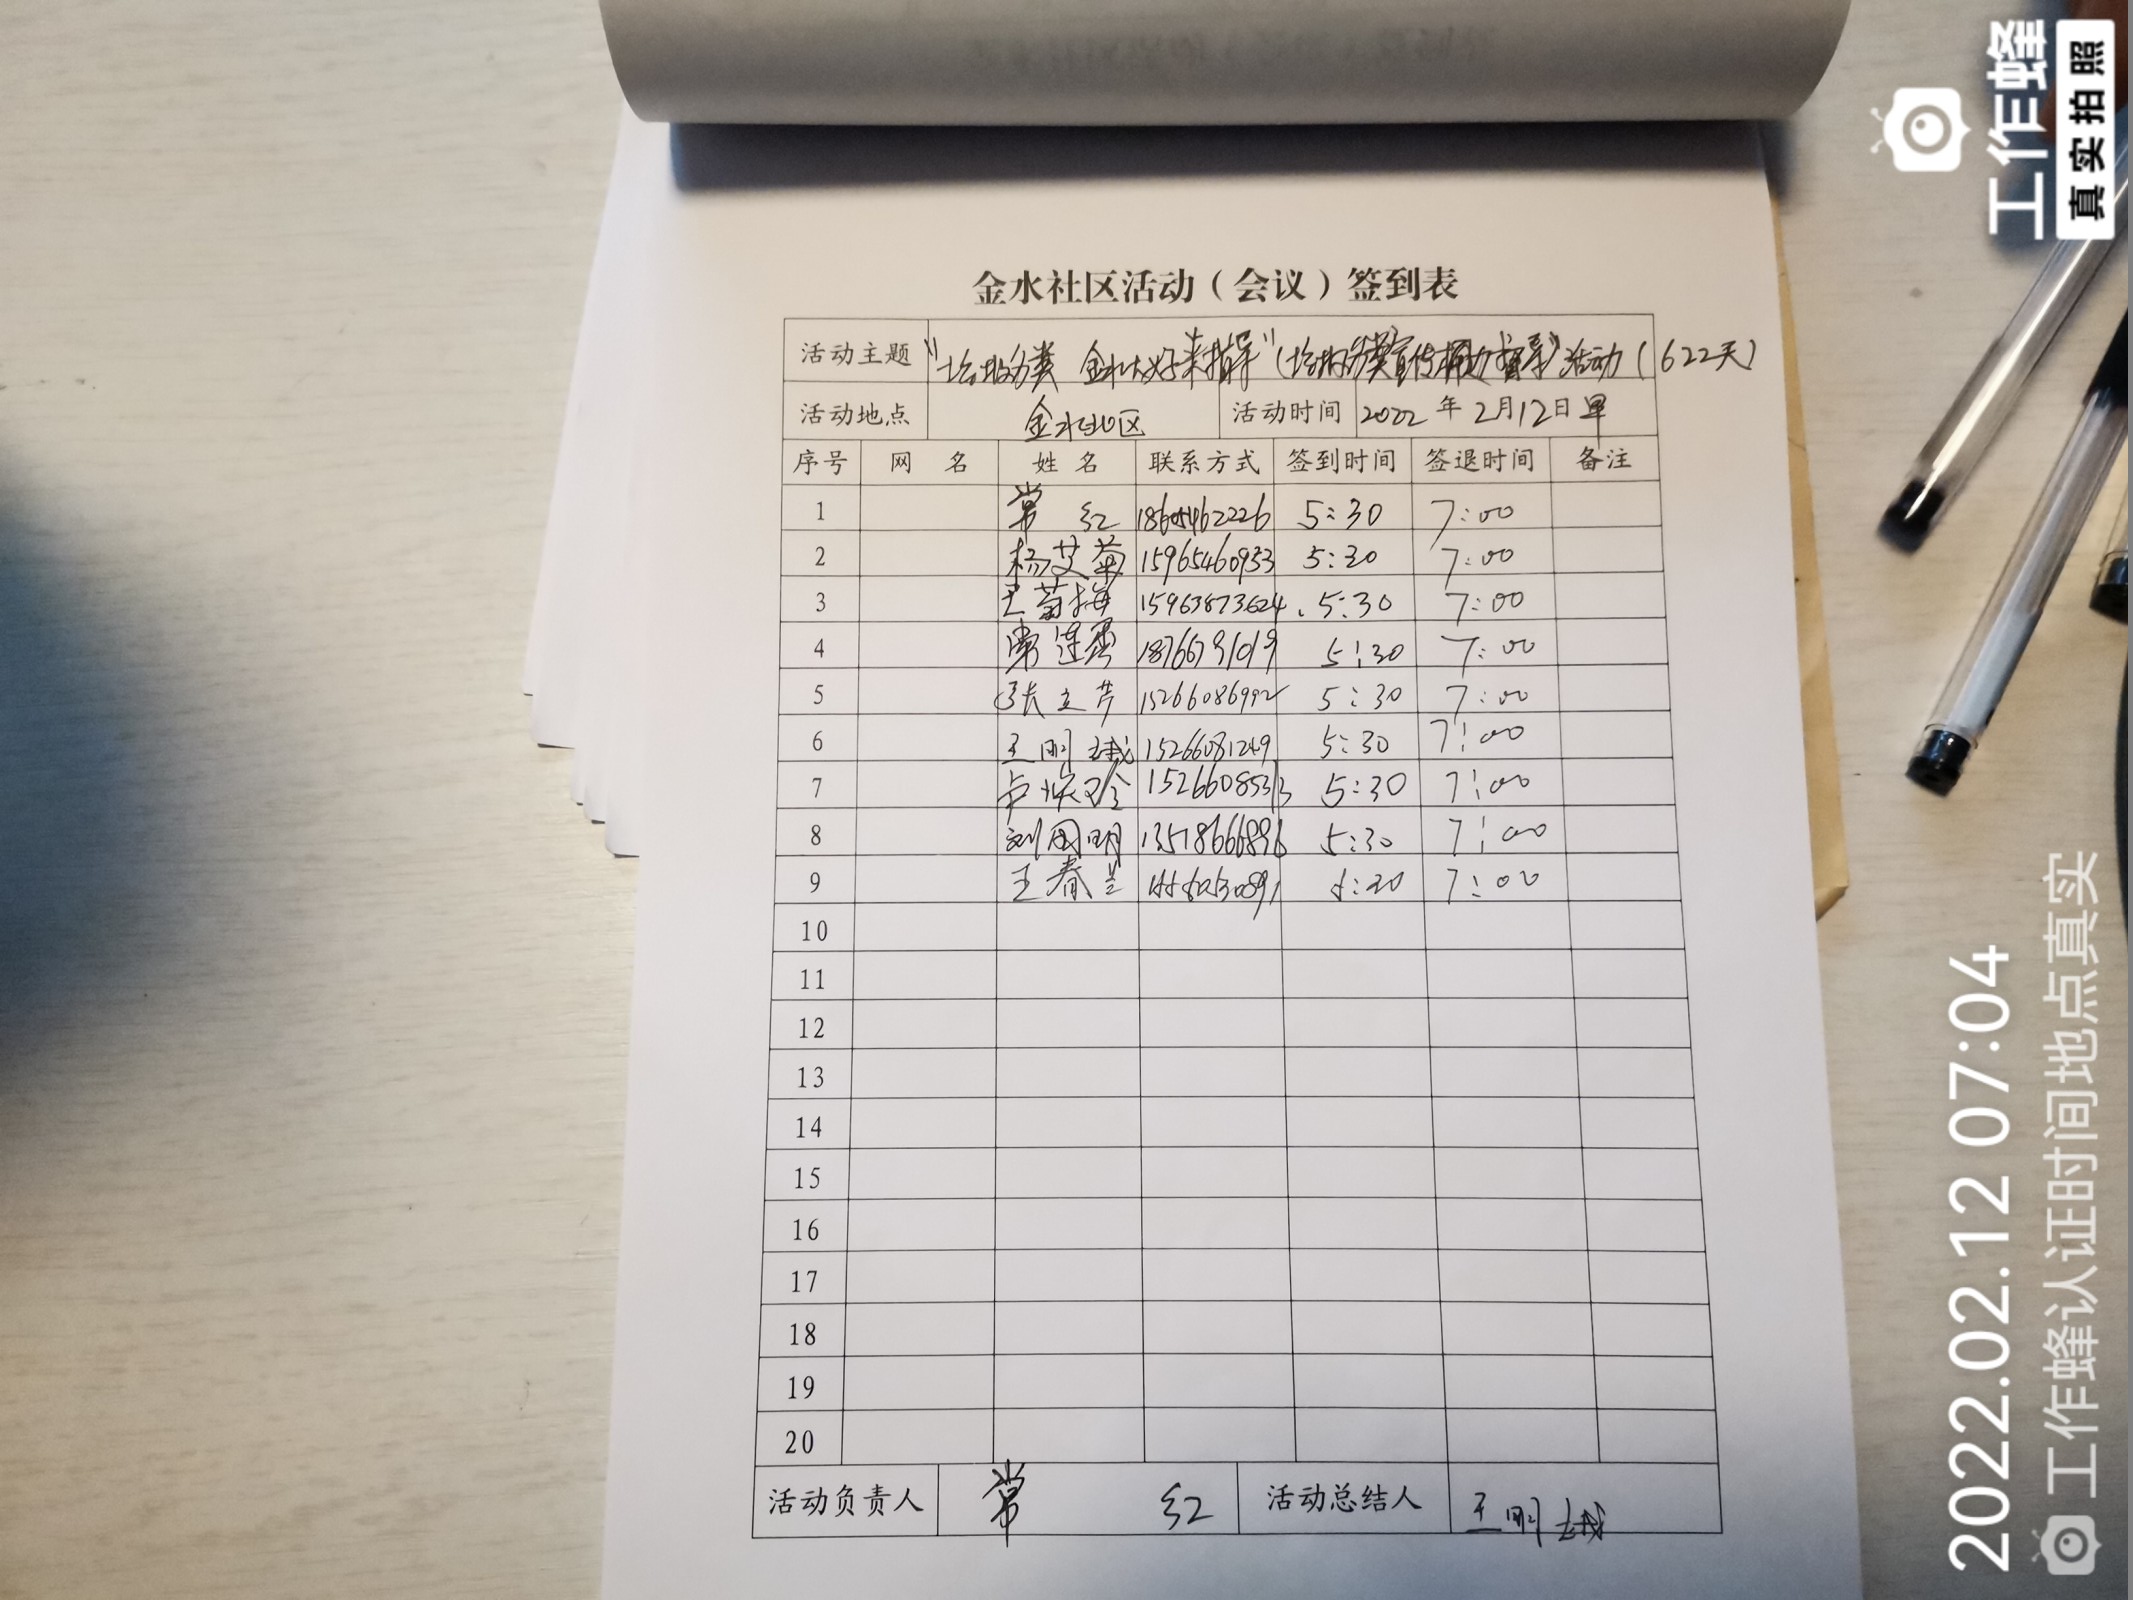 金水社区活动（会议）签到表
活动主题 "垃圾分类 金水大好来指导"（垃圾分类宣传桶边督导）活动（622天）
活动地点 金水社区 活动时间 2022年2月12日早
序号 网名 姓名 联系方式 签到时间 签退时间 备注
1 常红 18605462226 5:30 7:00
2 杨艾菊 15965460933 5:30 7:00
3 王菊梅 15963873624 5:30 7:00
4 常连 18766791019 5:30 7:00
5 张立芹 15266086992 5:30 7:00
6 王刚 15266081249 5:30 7:00
7 卢 15266085313 5:30 7:00
8 刘国明 13518666896 5:30 7:00
9 王春兰 5:30 7:00
10
11
12
13
14
15
16
17
18
19
20
活动负责人 常红 活动总结人 王刚
工作蜂
真实拍照
2022.02.12 07:04
工作蜂认证时间地点真实